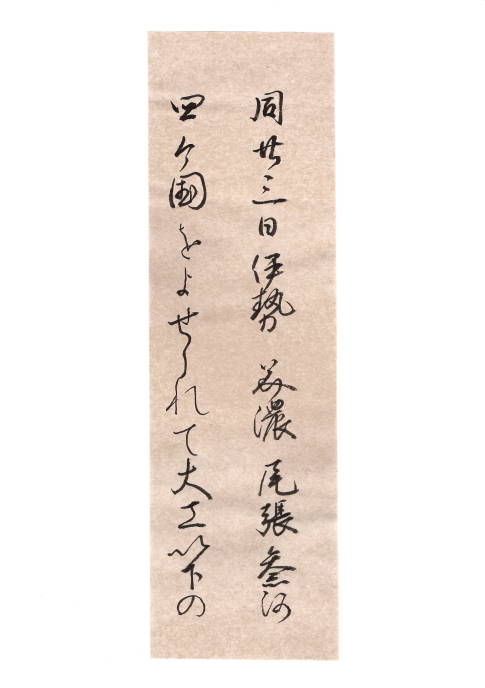 同廿三日伊勢 美濃 尾張 參河
四ケ国をよせられて大工以下の